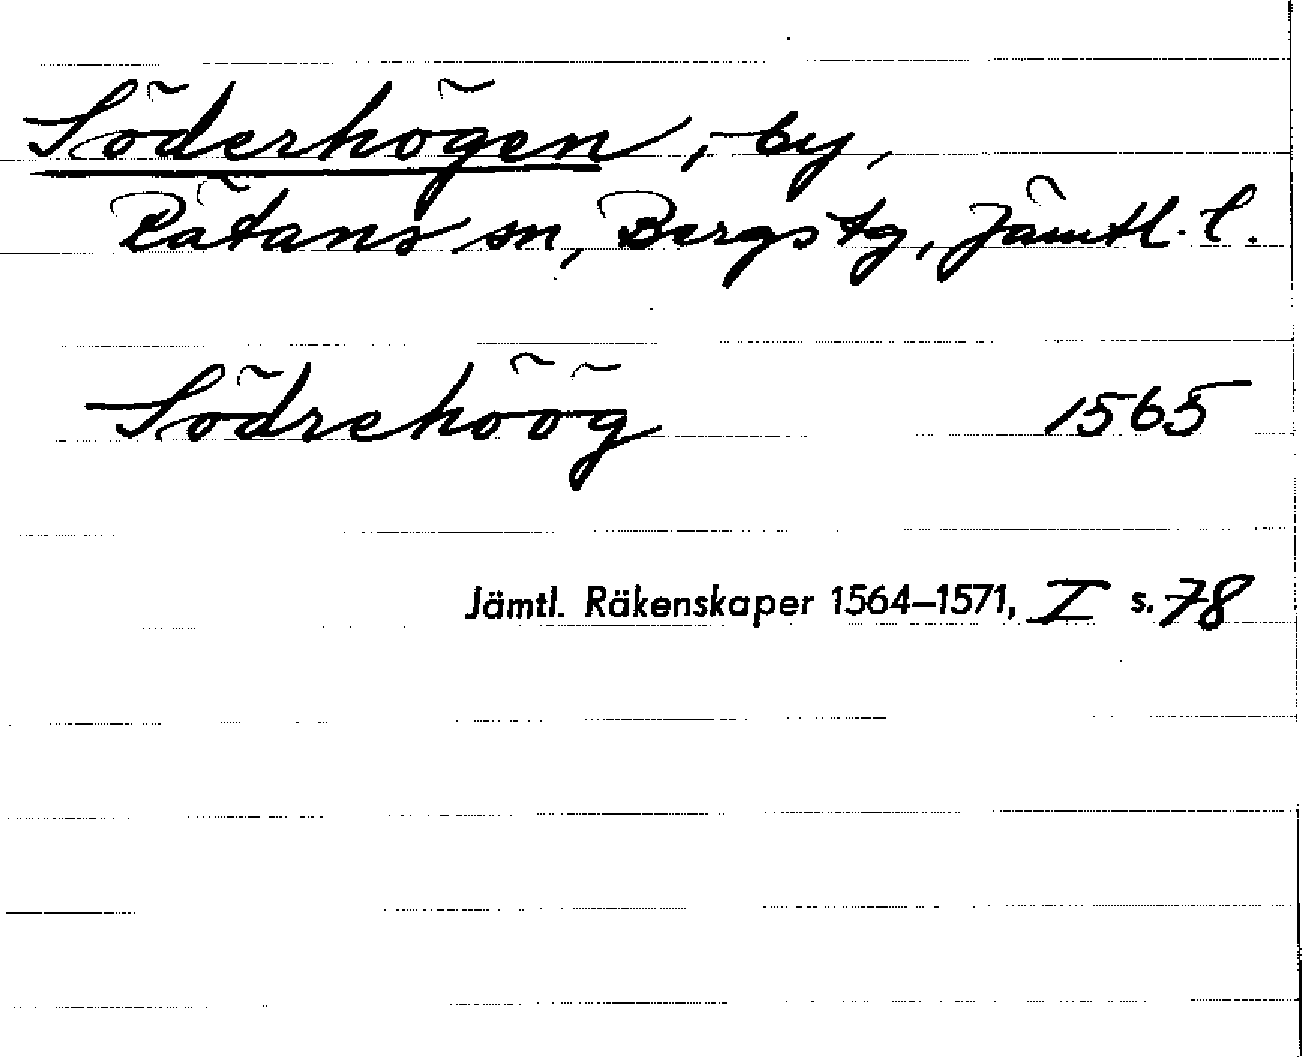 Söderhögen, by,
Rätans sn, Bergs tg, Jämtl. l.
Södrehöög 1565
Jämtl. Räkenskaper 1564–1571, I s. 78